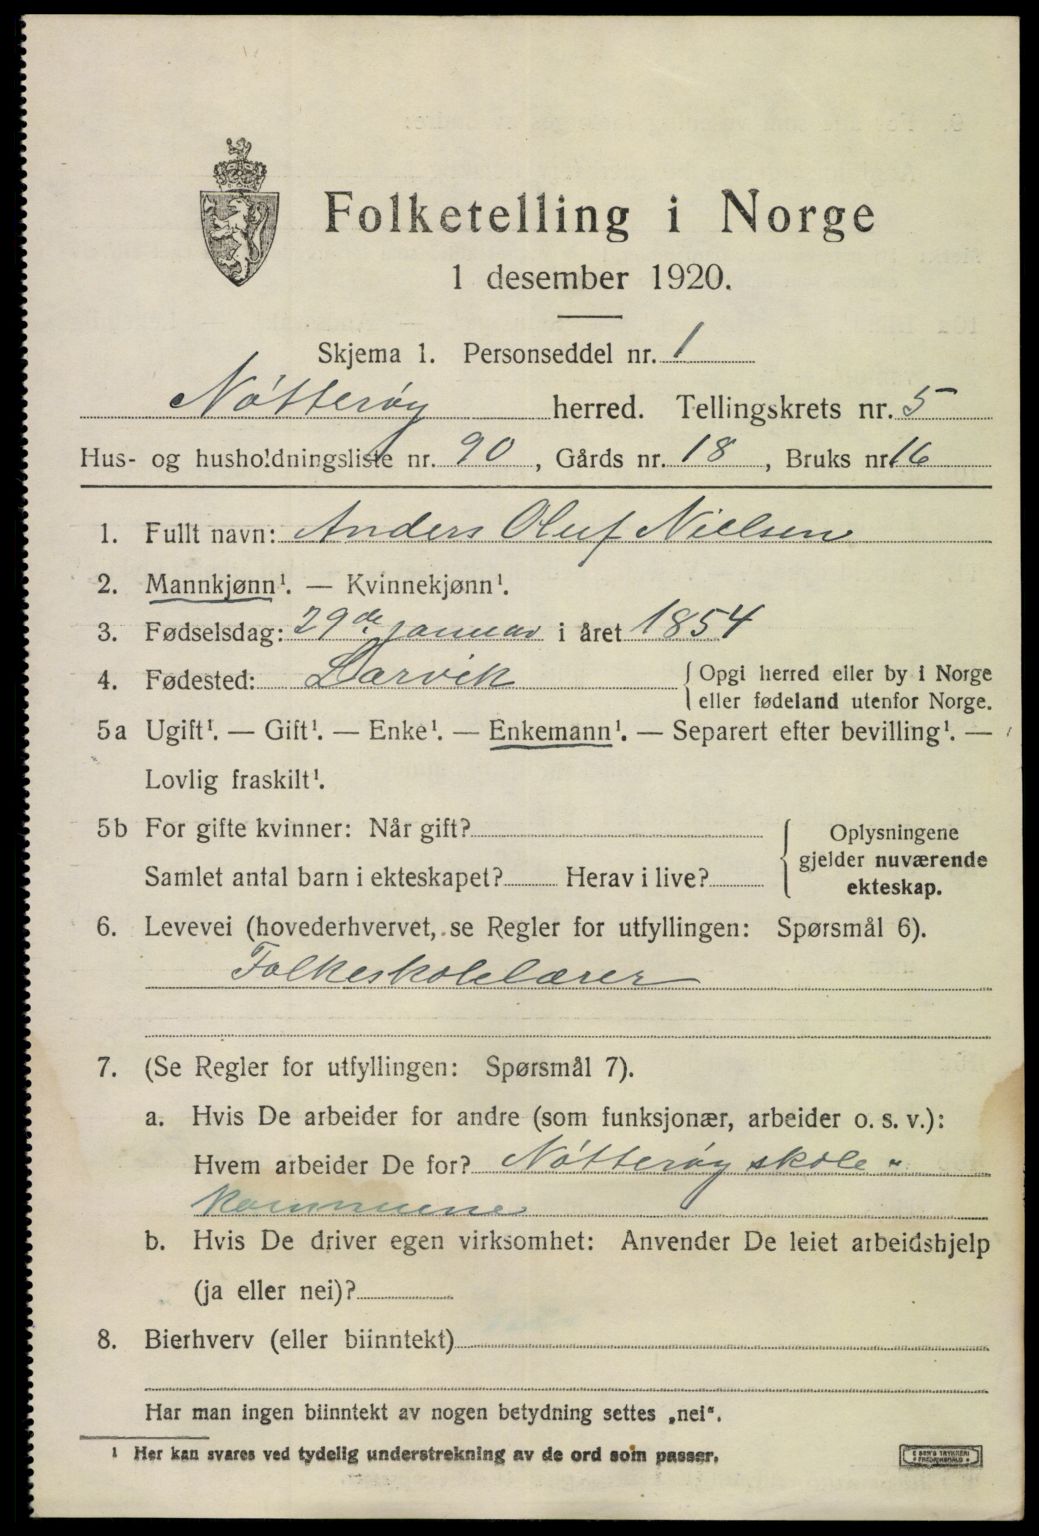 Folketelling i Norge
1 desember 1920.
Skjema 1. Personseddel nr. 1
Nøtterøy herred. Tellingskrets nr. 5
Hus- og husholdningsliste nr. 90, Gårds nr. 18, Bruks nr. 16
1. Fullt navn: Anders Oluf Nielsen
2. Mannkjønn¹. — Kvinnekjønn¹.
3. Fødselsdag: 29de januar i året 1854
4. Fødested: Larvik { Opgi herred eller by i Norge
eller fødeland utenfor Norge.
5a Ugift¹. — Gift¹. — Enke¹. — Enkemann¹. — Separert efter bevilling¹. —
Lovlig fraskilt¹.
5b For gifte kvinner: Når gift?
Samlet antal barn i ekteskapet? Herav i live?
Oplysningene
gjelder nuværende
ekteskap.
6. Levevei (hovederhvervet, se Regler for utfyllingen: Spørsmål 6).
Folkeskolelærer
7. (Se Regler for utfyllingen: Spørsmål 7).
a. Hvis De arbeider for andre (som funksjonær, arbeider o. s. v.):
Hvem arbeider De for? Nøtterøy skole-
kommune
b. Hvis De driver egen virksomhet: Anvender De leiet arbeidshjelp
(ja eller nei)?
8. Bierhverv (eller biinntekt)
Har man ingen biinntekt av nogen betydning settes „nei“.
¹ Her kan svares ved tydelig understrekning av de ord som passer.